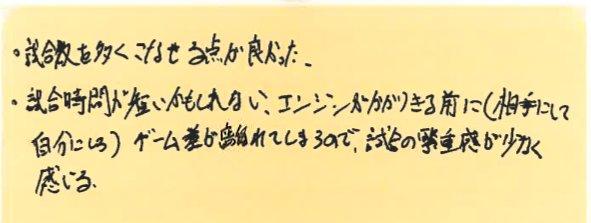 ・試合数を多くこなせる点が良かった。
・試合時間が短いかもしれない、エンジンがかかりきる前に(相手にして
自分にしろ)ゲーム差が離れてしまうので、試合の緊重感が少なく
感じる。